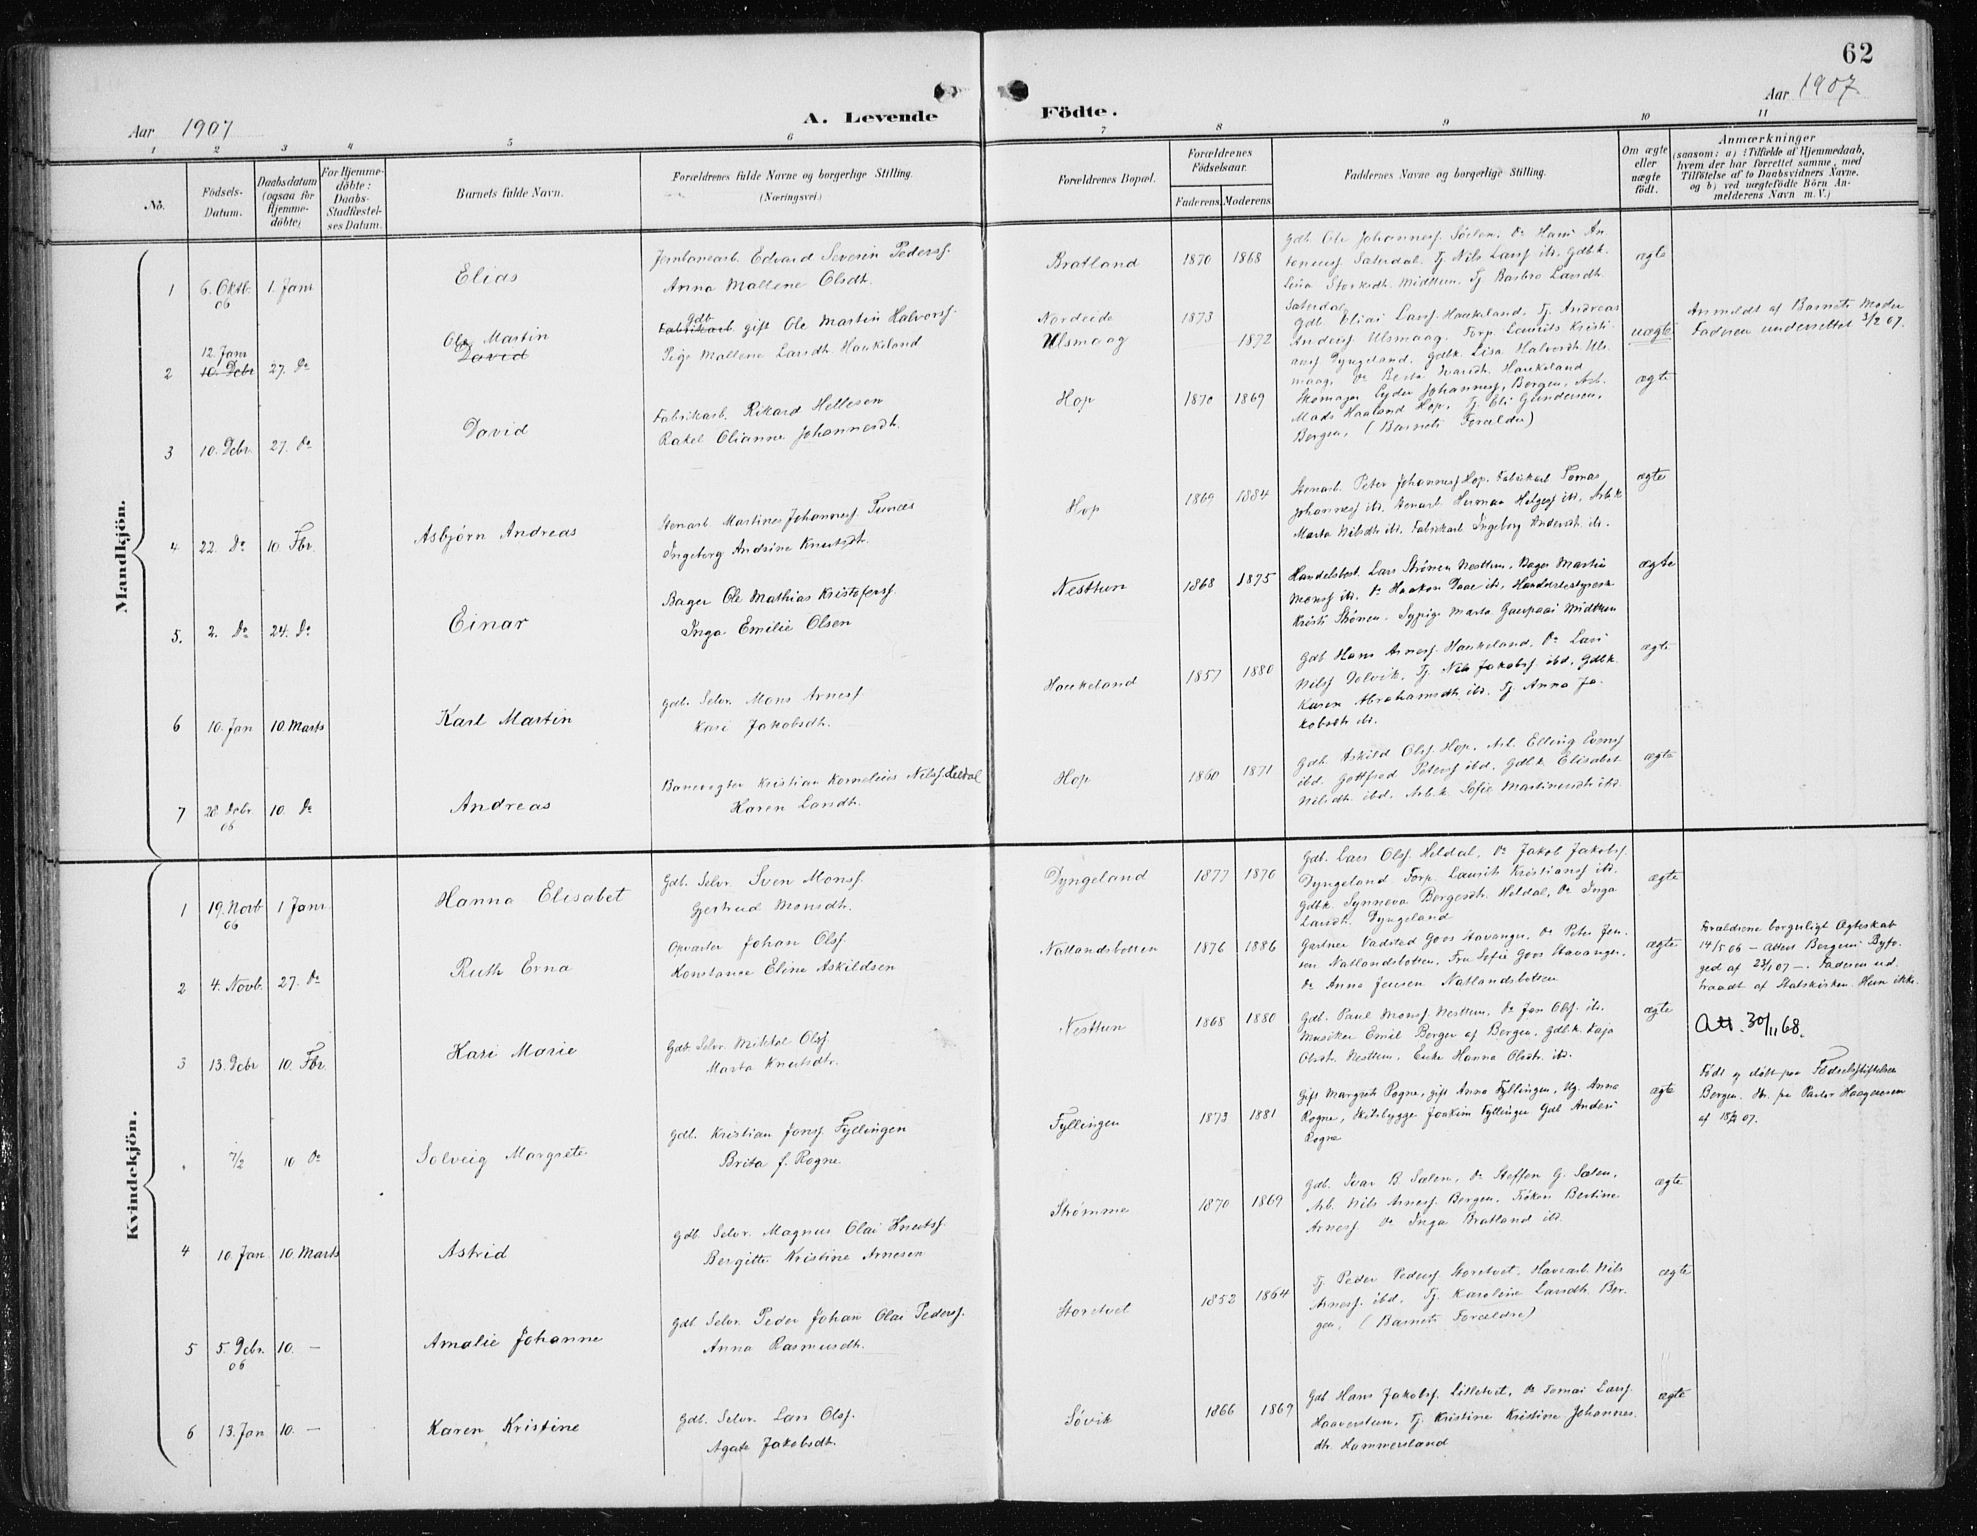 62
Aar 1907
A. Levende Födte.
Aar 1907.
1 2 3 4 5 6 7 8 9 10 11
No.
Födsels-
Datum.
Daabsdatum
(ogsaa for
Hjemme-
döbte)
For Hjemme-
döbte:
Daabs-
Stadfæstel-
ses Datum.
Barnets fulde Navn.
Forældrenes fulde Navne og borgerlige Stilling.
(Næringsvei)
Forældrenes Bopæl.
Forældrenes
Födselsaar.
Faderens. Moderens.
Faddernes Navne og borgerlige Stilling.
Om ægte
eller
uægte
födt.
Anmærkninger
(saasom: a) i Tilfælde af Hjemmedaab,
hvem der har forrettet samme, med
Tilföielse af to Daabsvidners Navne,
og b) ved uægtefödte Börn An-
melderens Navn m. V.)
Mandkjön.
1 6. Oktb. 06 1. Janr Elias
Edvard Severin Pederss.
Anna Mallene Olsdt.
Bratland 1870 1868
Gdb. Ole Johanness. Sælen, Do Hans An-
tonius Saterdal, Tj. Nils Larss ibd, Gdbk.
Lina Storksdt. Midttun, Tj. Barbro Larsdt.
Saterdal
ægte
2 12. Janr 10. Debr 27. Do Ole Martin David
Gdb. Fabrikarb. gift Ole Martin Halvorss.
Pige Mallene Larsdt. Haukeland
Nordeide 1873
Ulsmaag 1872
Gdb Elias Larss. Haukeland, Tj. Andreas
Anderss Ulsmaag, Forp. Laurits Kristi-
anss Dyngeland, Gdbk. Lisa Halvorsdt. Uls-
maag, Do Berta Larsdt. Haukeland
uægte
Anmeldt af Barnets Moder
Faderen underrettet 3/2 07.
3 10. Debr. 27. Do David
Fabrikarb. Rikard Hellesen
Rakel Olianne Johannesdt.
Hop 1870 1869
Skomager Lyder Johanness, Bergen, Arb.
Mads Haaland Hop, Tj. Eli Gundersen,
Bergen, (Barnets Forældre)
ægte
4. 22. Do 10. Fbr. Asbjørn Andreas
Stenarb. Martines Johanness Tunæs
Ingeborg Andrine Knutsdt.
Hop 1869 1884
Stenarb. Peter Johanness Hop, Fabrikarb Tomas
Johanness ibd, Stenarb. Herman Helgess ibd, Arbk
Marta Nilsdt ibd, Fabrikarb Ingeborg Andersdt. ibd.
ægte
5. 2. Do 24. Do Einar
Bager Ole Mathias Kristoferss.
Inga Emilie Olsen
Nesttun 1868 1875
Handelsbest. Lars Strønen Nesttun, Bager Martin
Monss ibd, Do Haakon Daae ibd, Handelsbestyrerske
Kristi Strønen, Sypige Marta Midttun
ægte
6 10. Jan 10. Marts Karl Martin
Gdb. Selv. Mons Arness
Kari Jakobsdt.
Haukeland 1857 1880
Gdb Hans Arness. Haukeland, Do Lars
Nilss Dolvik, Tj. Nils Jakobss ibd, Gdbk.
Karen Abrahamsdt. ibd, Tj. Anna Ja-
kobsdt ibd.
ægte
7 28 Debr. 06 10. Do Andreas
Banevogter Kristian Kornelius Nilss Heldal
Karen Larsdt.
Hop 1860 1871
Gdb. Askild Olss. Hop, Arb. Elling Evenss
ibd. Gottfred Peterss ibd, Gdbk. Elisabet
Nilsdt. ibd. Arbk. Sofie Martinusdt ibd.
ægte
Kvindekjön.
1 19. Novb 06 1 Janr Hanna Elisabet
Gdb. Selv. Sven Monss.
Gjertrud Monsdt.
Dyngeland 1877 1870
Gdb. Lars Olss. Heldal, Do Jakob Jakobss.
Dyngeland Forp. Laurits Kristianss ibd.
Gdbk. Synneva Bergesdt. Heldal, Do Inga
Larsdt. Dyngeland
ægte
2 4. Novb. 27. Do Ruth Erna
Opvarter Johan Olss.
Konstance Eline Askildsen
Natlandsbotten 1876 1886
Gartner Vadsted Goos Stavanger, Do Peter Jen-
sen Natlandsbotten, Fru Sofie Goos Stavanger,
Do Anna Jensen Natlandsbotten
ægte
Forældrene borgerligt Ægteskab
14/5 06 – Attest Bergens Byfo-
ged af 23/1 07 –. Faderen ud-
traadt af Statskirken. Hun ikke.
3 13. Debr 10. Fbr. Kari Marie
Gdb. Selv. Mikkel Olss.
Marta Knutsdt.
Nesttun 1868 1880
Gdb. Paul Monss. Nesttun, Do Jan Olss. ibd.
Musiker Emil Berger af Bergen, Gdbk. Kaja
Olsdt. Nesttun, Enke Hanna Olsdt. ibd.
ægte
Att. 30/11 68.
. 7/2 10 Do Solveig Margrete
Gdb. Kristian Jonss. Fyllingen
Brita f. Rogne
Fyllingen 1873 1881
Gift Margrete Rogne, gift Anna Fyllingen, Ug. Anna
Rogne, Skibsbygge Joakim Fyllingen Gdb Anders
Rogne
ægte
Født og døbt paa Fødselsstiftelsen
Bergen. af 18/2 07.
4 10. Jan 10 Marts Astrid
Gdb. Selv. Magnus Olai Knutss.
Bergitte Kristine Arnesen
Strømme 1870 1869
Gdb. Ivar B Sælen, Do Steffen G. Sælen,
Arb. Nils Arness. Bergen, Frøken Bertine
Arness Do Inga Bratland ibd.
ægte
5 5. Debr. 06 10. – Amalie Johanne
Gdb Selv. Peder Johan Olai Pederss.
Anna Rasmusdt.
Storetvet 1852 1864
Tj. Peder Pederss Storetvet, Havearb. Nils
Arness. ibd, Tj. Karoline Larsdt. Ber-
gen, (Barnets Forældre)
ægte
6 13. Jan 10. – Karen Kristine
Gdb. Selv. Lars Olss.
Agate Jakobsdt.
Søvik 1866 1869
Gdb Hans Jakobss. Lilletvet, Do Tomas Larss.
Haaverstun, Tj. Kristine Kristine Johannes-
dt. Hammersland
ægte